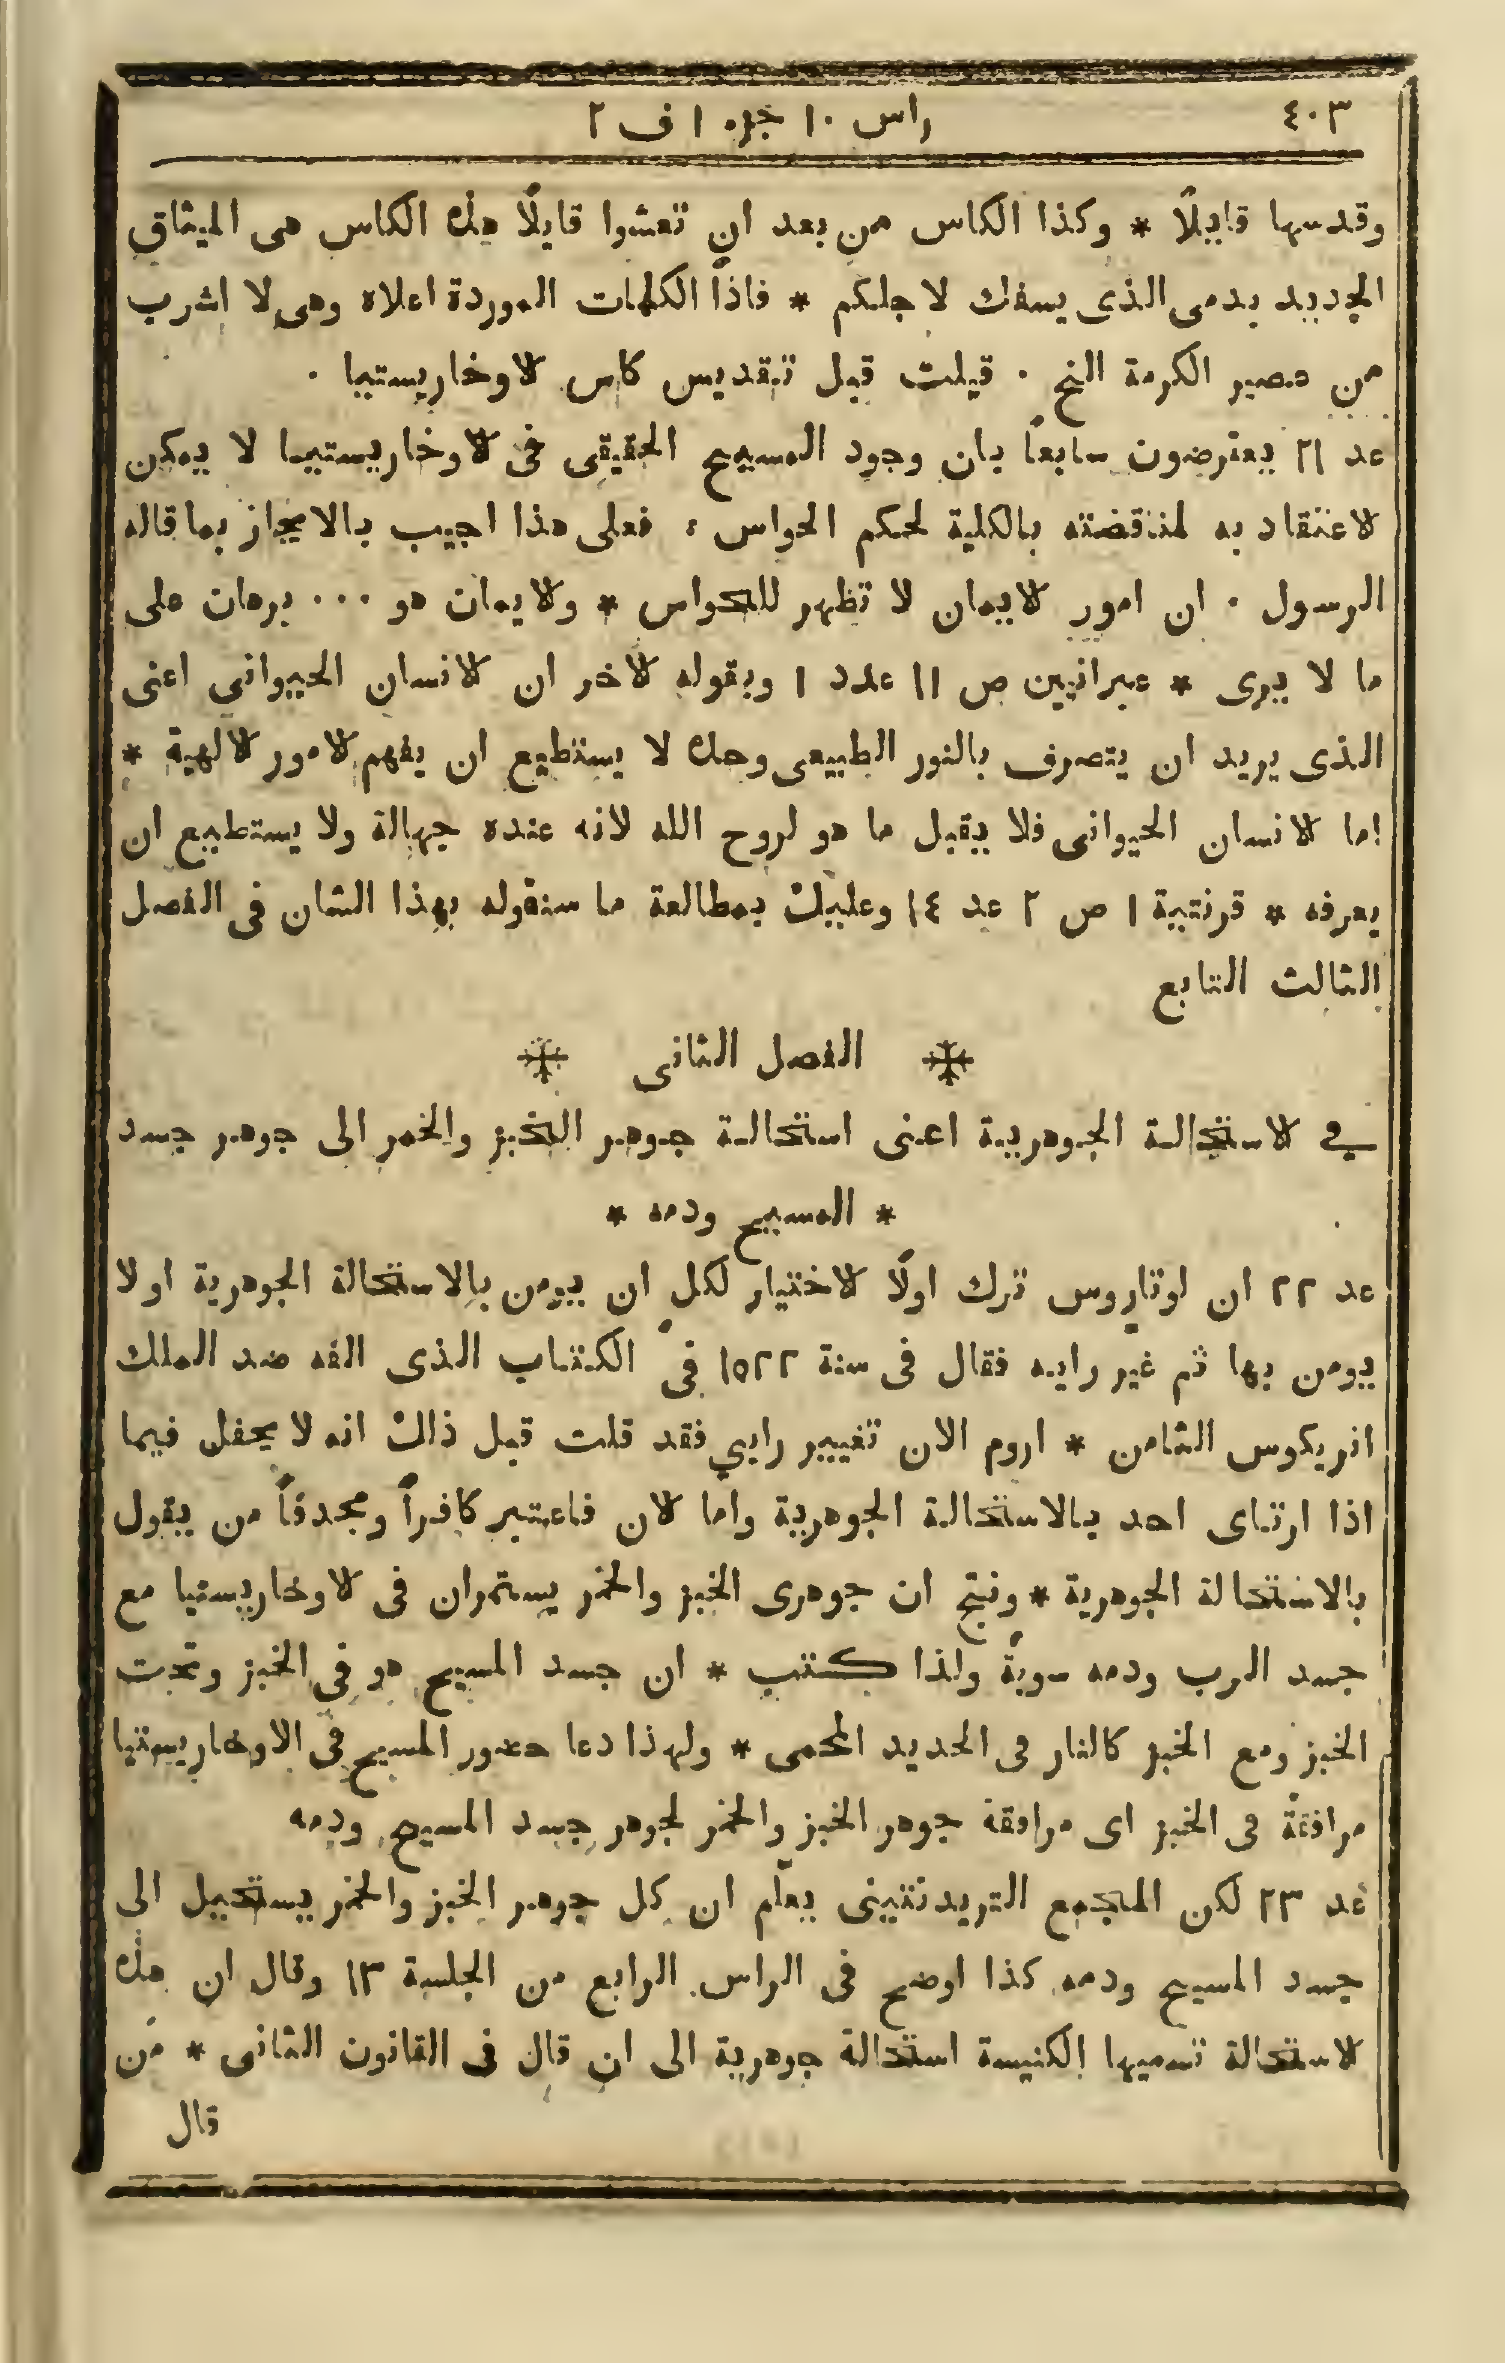 ٤٠٣
راس ١٠ جزء ١ ف ٢
وقدسها قايلًا * وكذا الكاس من بعد ان تعشوا قايلًا هذه الكاس هى الميثاق
الجديد بدمى الذى يسفك لاجلكم * فاذًا الكلمات الموردة اعلاه وهى لا اشرب
من عصير الكرمة الخ ٠ قيلت قبل تقديس كاس لاوخاريستيا ٠
عد ٢١ يعترضون سابعاً بان وجود المسيح الحقيقى فى لاوخاريستيا لا يمكن
لاعتقاد به لمناقضته بالكلية لحكم الحواس ، فعلى هذا اجيب بالايجاز بما قاله
الرسول ٠ ان امور لايمان لا تظهر للحواس * ولايمان هو ٠٠٠ برهان على
ما لا يرى * عبرانيين ص ١١ عدد ١ وبقوله لاخر ان لانسان الحيوانى اعنى
الذى يريد ان يتصرف بالنور الطبيعى وحده لا يستطيع ان يفهم لامور لالهية *
اما لانسان الحيوانى فلا يقبل ما هو لروح الله لانه عنده جهالة ولا يستطيع ان
يعرفه * قرنتية ١ ص ٢ عد ١٤ وعليك بمطالعة ما سنقوله بهذا الشان فى الفصل
الثالث التابع
الفصل الثانى
في لاستحالة الجوهرية اعنى استحالة جوهر الخبز والخمر الى جوهر جسد
* المسيح ودمه *
عد ٢٢ ان لوتاروس ترك اولًا لاختيار لكل ان يومن بالاستحالة الجوهرية اولا
يومن بها ثم غير رايه فقال فى سنة ١٥٢٢ فى الكتاب الذى الفه ضد الملك
انريكوس الثامن * اروم الان تغيير رايي فقد قلت قبل ذلك انه لا يحفل فيما
اذا ارتاى احد بالاستحالة الجوهرية واما لان فاعتبر كافراً ومجدفاً من يقول
بالاستحالة الجوهرية * ونتج ان جوهرى الخبز والخمر يستمران فى لاوخاريستيا مع
جسد الرب ودمه سويةً ولذا كتب * ان جسد المسيح هو فى الخبز وتحت
الخبز ومع الخبز كالنار فى الحديد المحمى * ولهذا دعا حضور المسيح فى الاوخاريستيا
مرافقةً فى الخبز اى مرافقة جوهر الخبز والخمر لجوهر جسد المسيح ودمه
عد ٢٣ لكن المجمع التريدنتينى يعلّم ان كل جوهر الخبز والخمر يستحيل الى
جسد المسيح ودمه كذا اوضح فى الراس الرابع من الجلسة ١٣ وقال ان هذه
لاستحالة تسميها الكنيسة استحالة جوهرية الى ان قال فى القانون الثانى * من
قال